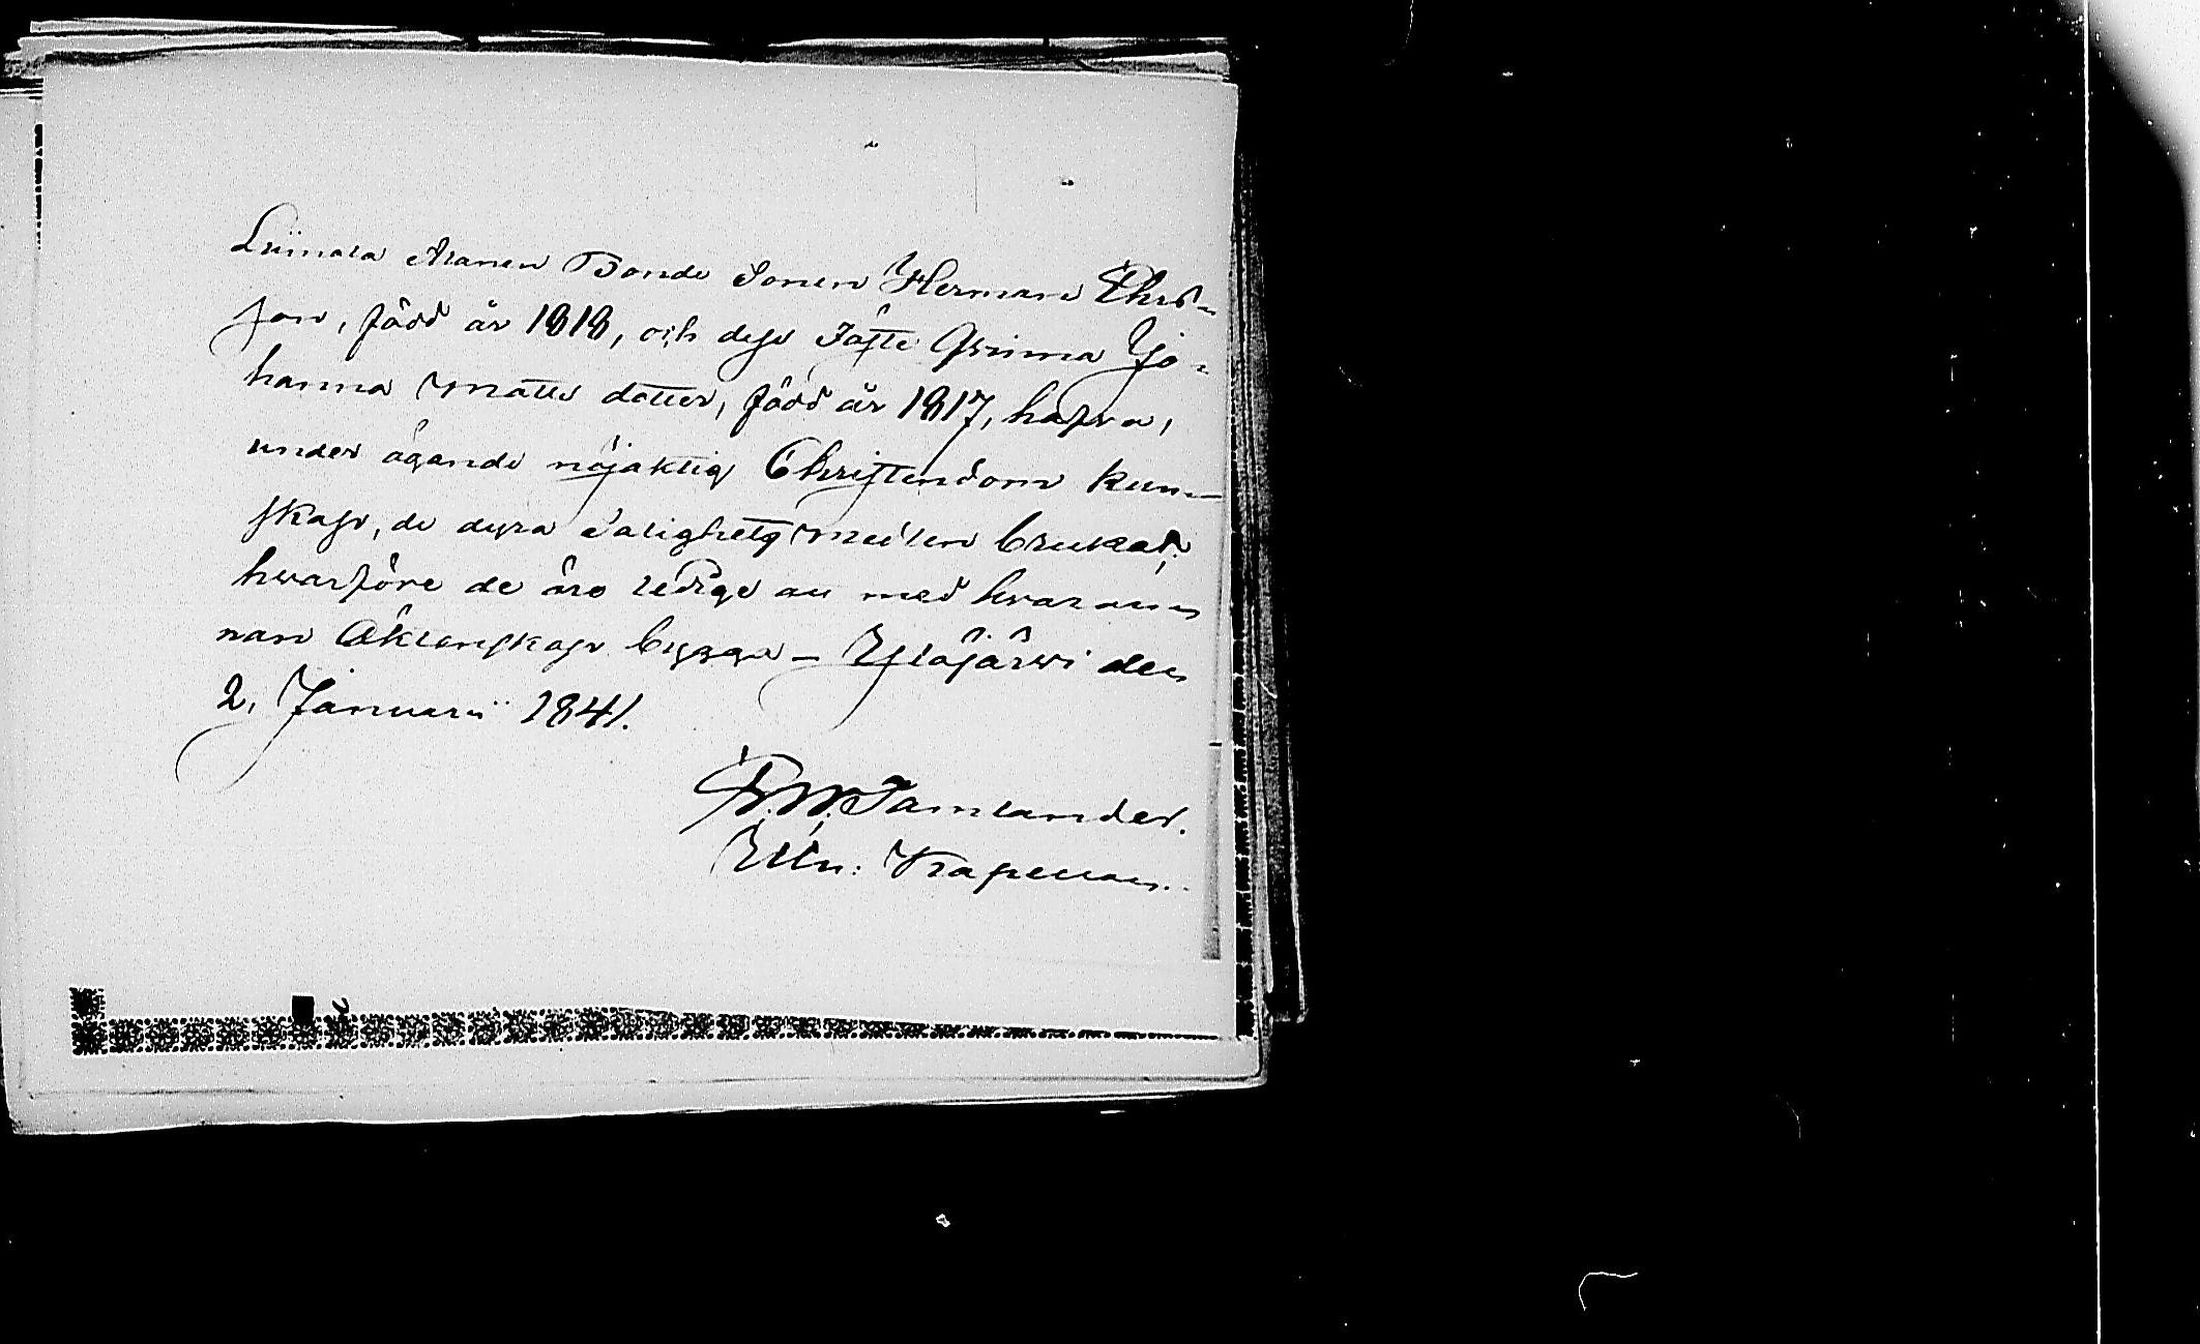 Liimala Alanen Bonde Sonen Herman Thoms¬
son, född år 1818, och dess Fäste Qvinna Jo¬
hanna Matts dotter, född år 1817, hafva,
under ägande nöjaktig Christendoms kun¬
skap, de dyra Salighets medlen brukat;
hvarföre de äro ledige att med hvaran¬
nan Äktenskap bygga – Ylöjärvi den
2. Januarii 1841.
F. W. Tamlander.
Kapellan.